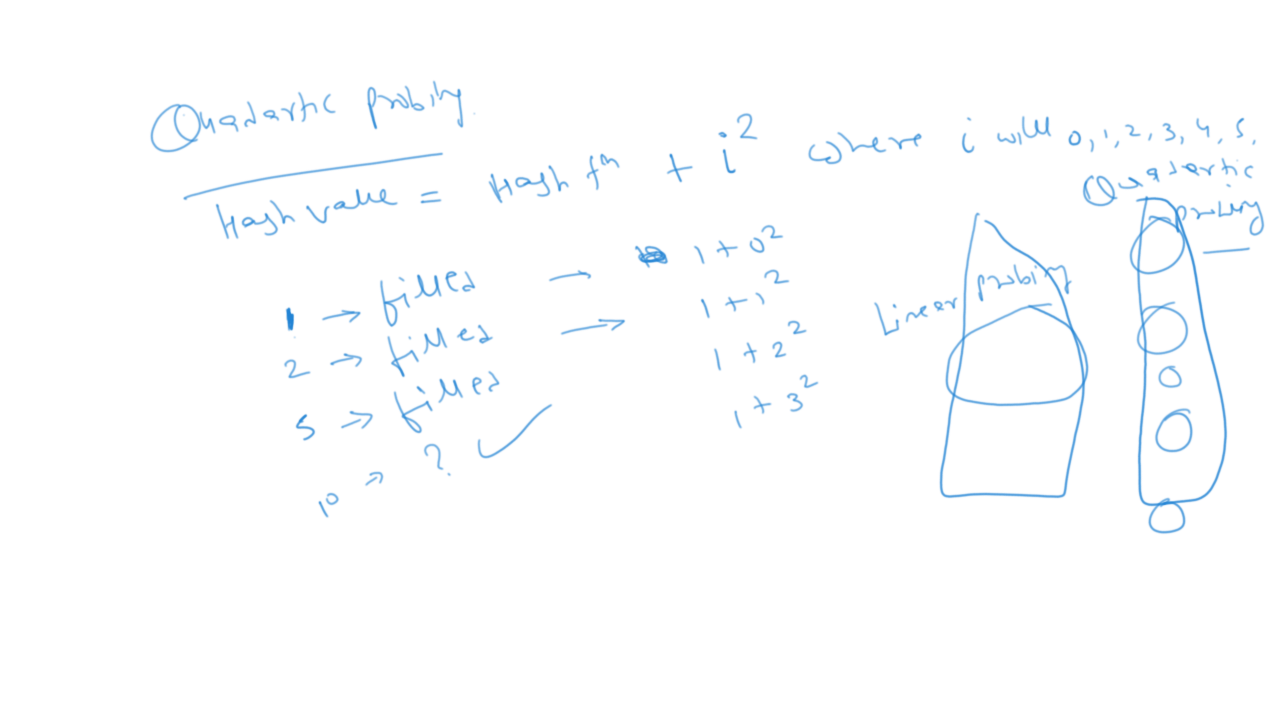 Quadartic probing
Hash value = Hash fn + i² where i will 0, 1, 2, 3, 4, 5,
1 → filled → 1 + 0²
2 → filled → 1 + 1²
5 → filled 1 + 2²
10 → ? ✓ 1 + 3²
Linear probing
Quadartic
probing